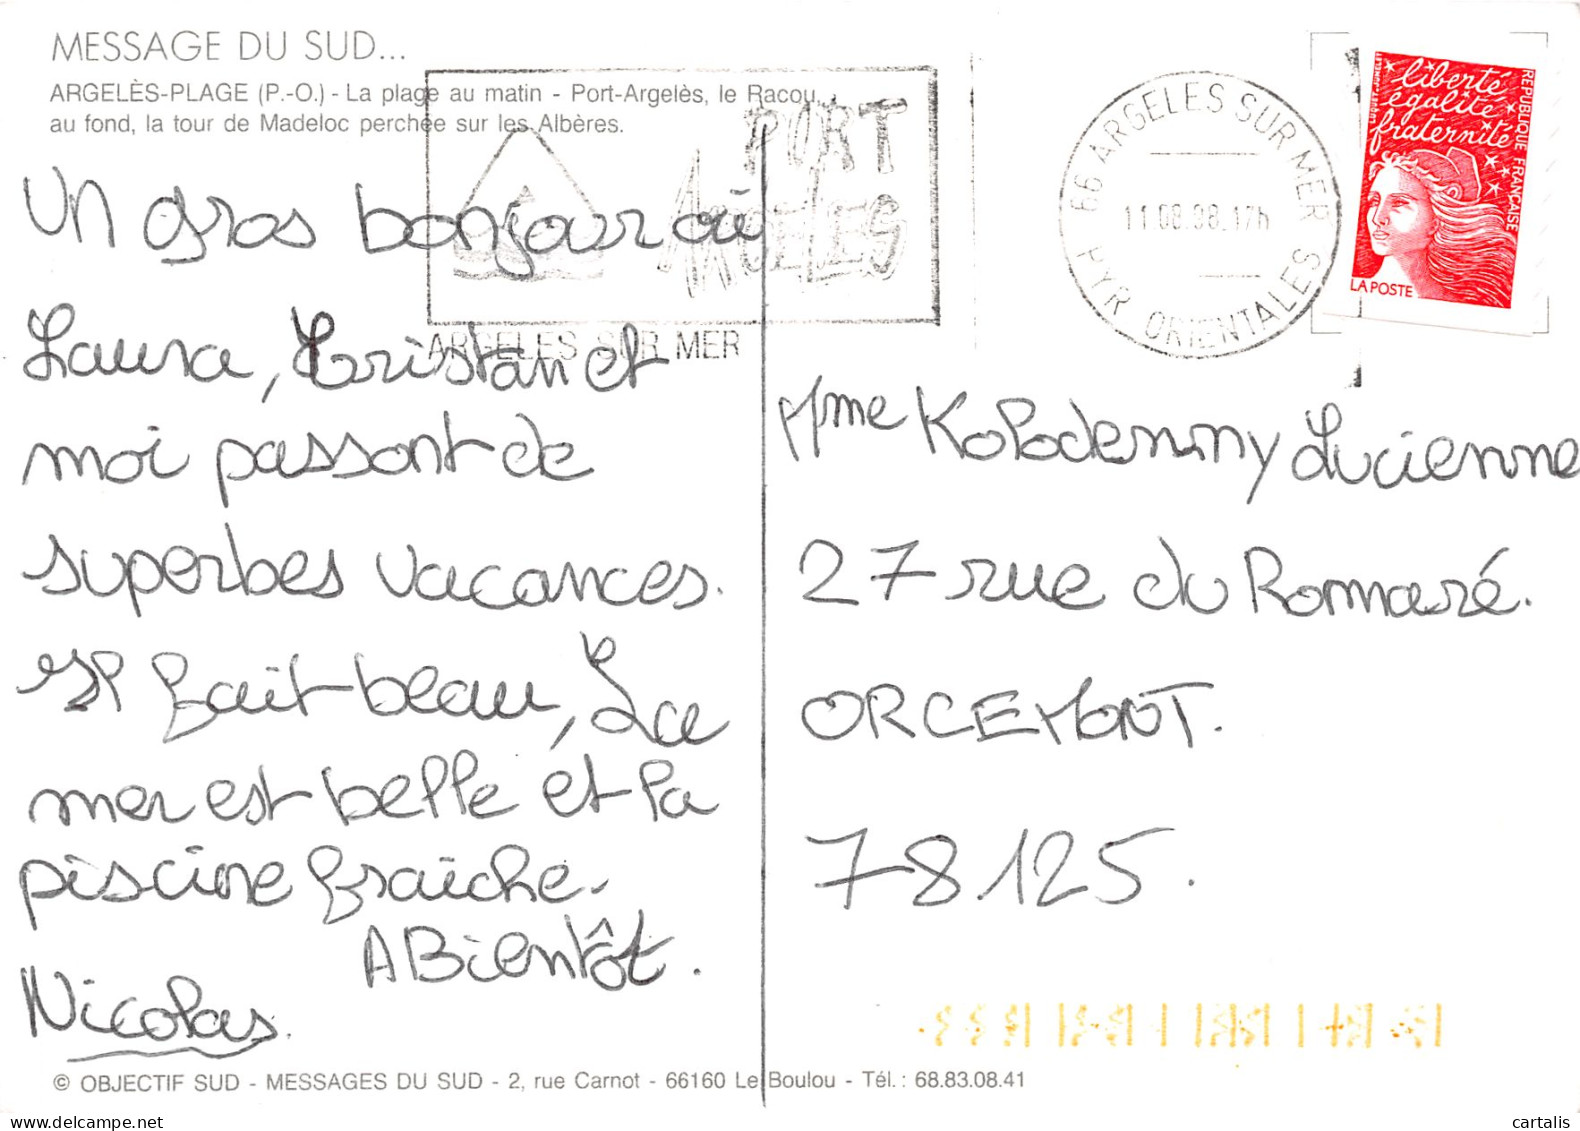 MESSAGE DU SUD...
ARGELÈS-PLAGE (P.-O.) - La plage au matin - Port-Argelès, le Racou...
au fond, la tour de Madeloc perchée sur les Albères.
PORT
ARGELES
ARGELES SUR MER
66 ARGELES SUR MER
11.08.98.17h
PYR ORIENTALES
liberté
égalité
fraternité
REPUBLIQUE FRANÇAISE
LA POSTE
Un gros bonjour où
Laura, Tristan et
moi passont de
superbes vacances.
Il fait beau, La
mer est belle et la
piscine fraîche.
A Bientôt.
Nicolas.
Mme Kolodenny Lucienne
27 rue du Romaré.
ORCEMONT.
78.125.
© OBJECTIF SUD - MESSAGES DU SUD - 2, rue Carnot - 66160 Le Boulou - Tél.: 68.83.08.41
cartalis